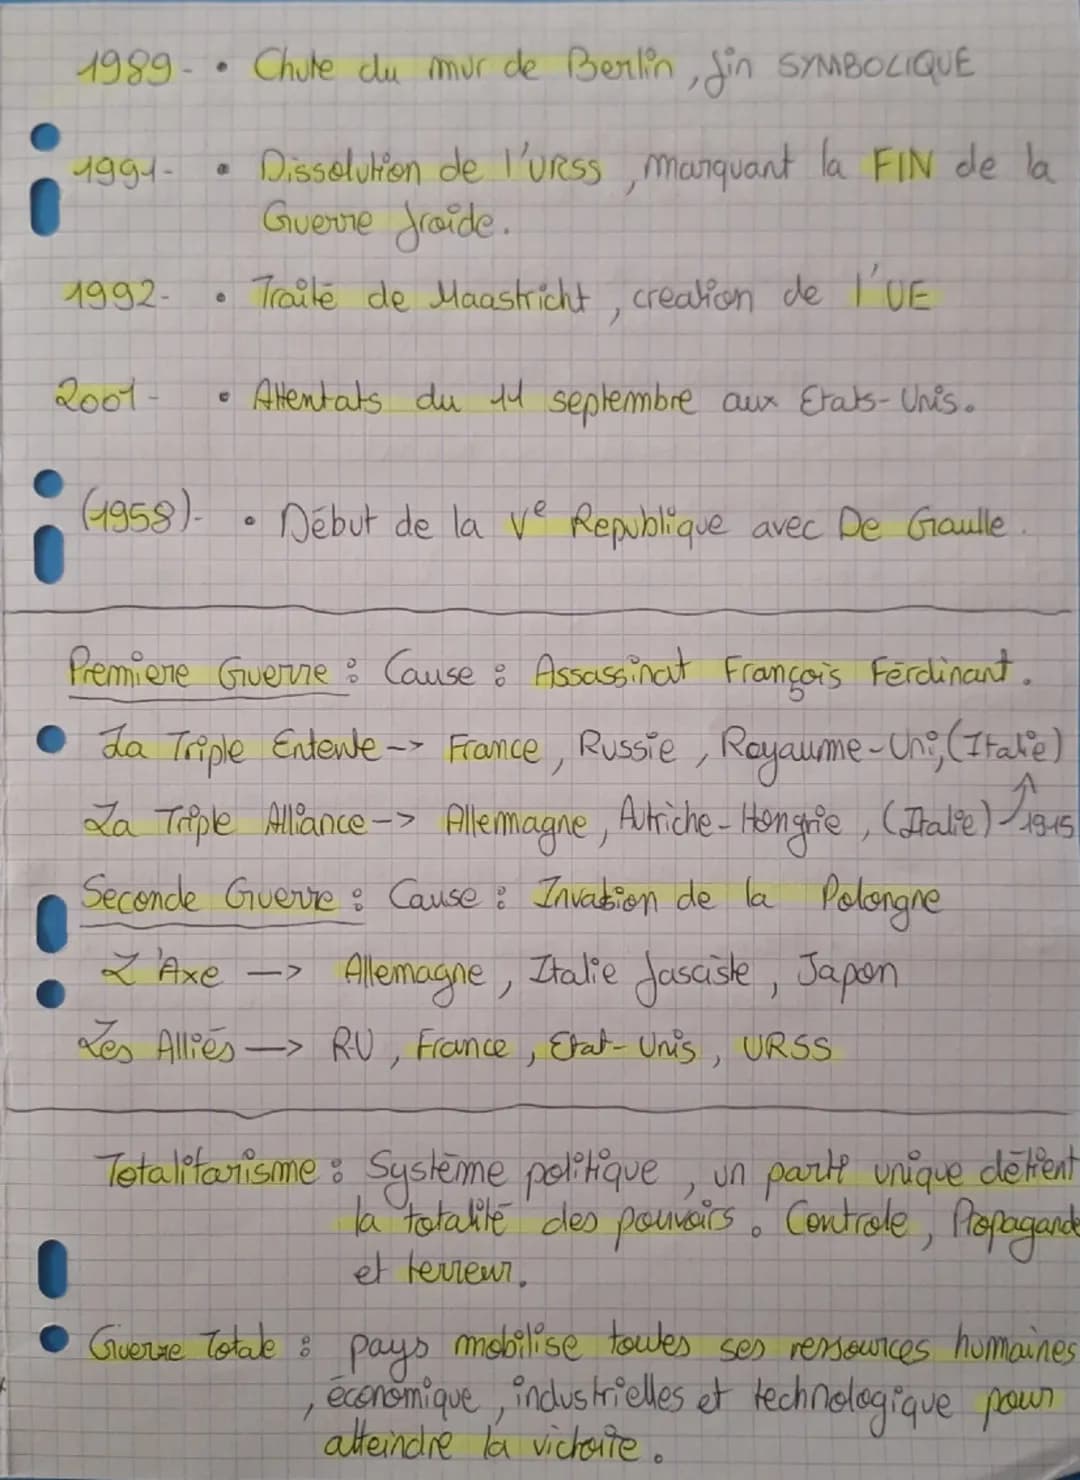 1989- • Chute du mur de Berlin, fin SYMBOLIQUE
1991- • Dissolution de l'URSS, marquant la FIN de la
Guerre froide.
1992- • Traité de Maastricht, creation de l'UE
2001- • Attentats du 11 septembre aux Etats-Unis.
(1958)- • Début de la Ve Republique avec De Gaulle.
Premiere Guerre : Cause : Assassinat François Ferdinant.
La Triple Entente --> France, Russie, Royaume-Uni, (Italie)
La Triple Alliance --> Allemagne, Autriche-Hongrie, (Italie) 1915
Seconde Guerre : Cause : Invasion de la Polongne
L'Axe --> Allemagne, Italie fasciste, Japon
Les Alliés --> R-U, France, Etat-Unis, URSS
Totalitarisme : Système politique, un parti unique détient
la totalité des pouvoirs. Controle, Propagande
et terreur.
Guerre Totale : pays mobilise toutes ses ressources humaines
, économique, industrielles et technologique pour
atteindre la victoire.